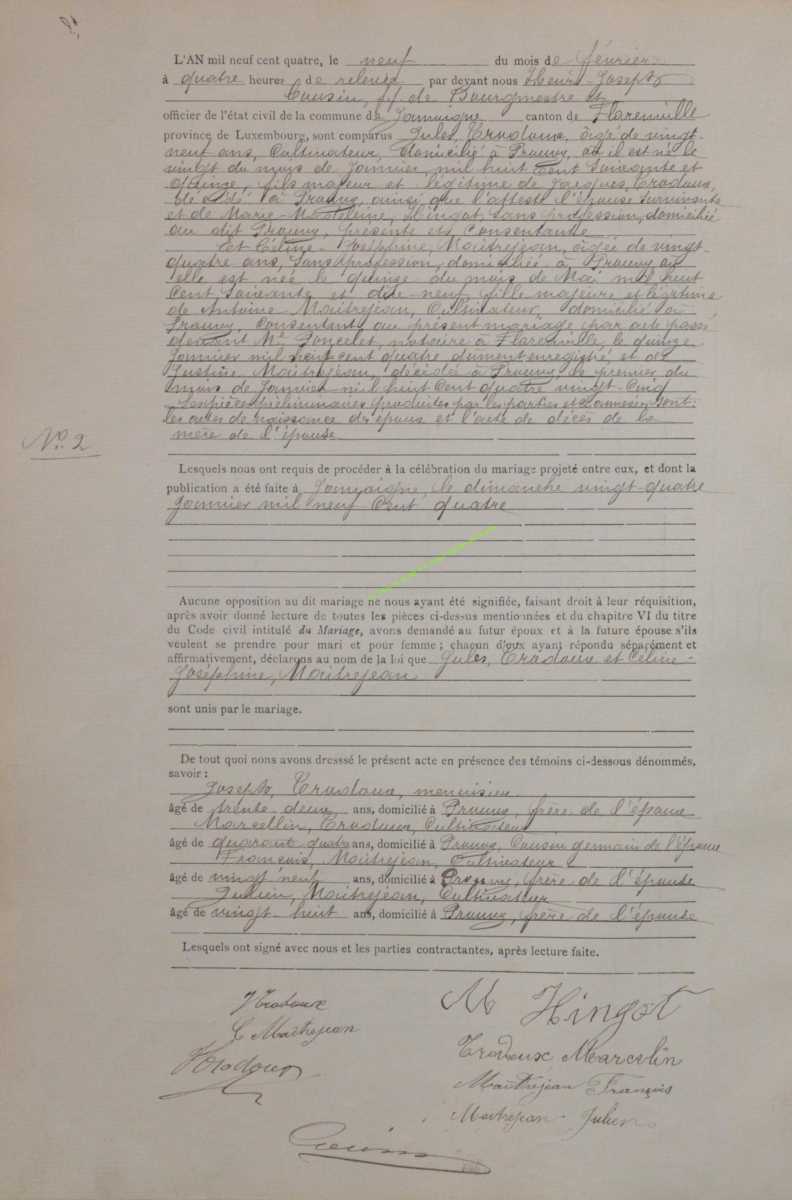 L'AN mil neuf cent quatre, le neuf du mois de février
à quatre heures de relevée par devant nous Henri-Joseph
Cousin, ff de Bourgmestre et
officier de l'état civil de la commune de Jamoigne canton de Florenville
province de Luxembourg, sont comparus Jules, Tradoux, âgé de vingt-
neuf ans, Cultivateur, domicilié à Prouvy, où il est né le
vingt du mois de Janvier mil huit Cent Soixante et
quinze, fils majeur et légitime de Jacques, Tradoux,
décédé à Prouvy, ainsi que l'atteste l'épouse survivante
et de Marie-Madeleine, Hingot, sans profession, domiciliée
au dit Prouvy, présente et consentante
et Céline-Joséphine, Maitrejean, âgée de vingt-
quatre ans, Sans profession, domiciliée à Prouvy où
elle est née le quinze du mois de Mai mil huit
Cent Soixante et dix-neuf, fille majeure et légitime
de Antoine Maitrejean, Cultivateur, domicilié à
Prouvy, Consentant au présent mariage par acte passé
devant Me Poncelet, notaire à Florenville, le quinze
Janvier mil neuf cent quatre dument enregistré et de
Justine, Maitrejean, décédée à Prouvy le premier du
mois de Janvier mil huit Cent quatre vingt-Cinq
Les pièces préliminaires produites par les parties et annexées sont:
les actes de naissance des époux et l'acte de décès de la
mère de l'épouse
No. 2
Lesquels nous ont requis de procéder à la célébration du mariage projeté entre eux, et dont la
publication a été faite à Jamoigne, le dimanche vingt-quatre
Janvier mil neuf Cent quatre
Aucune opposition au dit mariage ne nous ayant été signifiée, faisant droit à leur réquisition,
après avoir donné lecture de toutes les pièces ci-dessus mentionnées et du chapitre VI du titre
du Code civil intitulé du Mariage, avons demandé au futur époux et à la future épouse s'ils
veulent se prendre pour mari et pour femme ; chacun d'eux ayant répondu séparément et
affirmativement, déclarons au nom de la loi que Jules, Tradoux et Céline-
Joséphine, Maitrejean
sont unis par le mariage.
De tout quoi nons avons dresssé le présent acte en présence des témoins ci-dessous dénommés,
savoir :
Joseph, Tradoux, menuisier
âgé de trente-deux ans, domicilié à Prouvy, frère de l'époux
Marcellin, Tradoux, Cultivateur
âgé de quarant quatre ans, domicilié à Prouvy, Cousin germain de l'époux
François, Maitrejean, Cultivateur
âgé de vingt neuf ans, domicilié à Prouvy, frère de l'épouse
Julien, Maitrejean, Cultivateur
âgé de vingt huit ans, domicilié à Prouvy, frère de l'épouse
Lesquels ont signé avec nous et les parties contractantes, après lecture faite.
J Tradoux
M Hingot
C Maitrejean
Tradoux Marcelin
Tradoux
Maitrejean François
Maitrejean Julien
Cousin